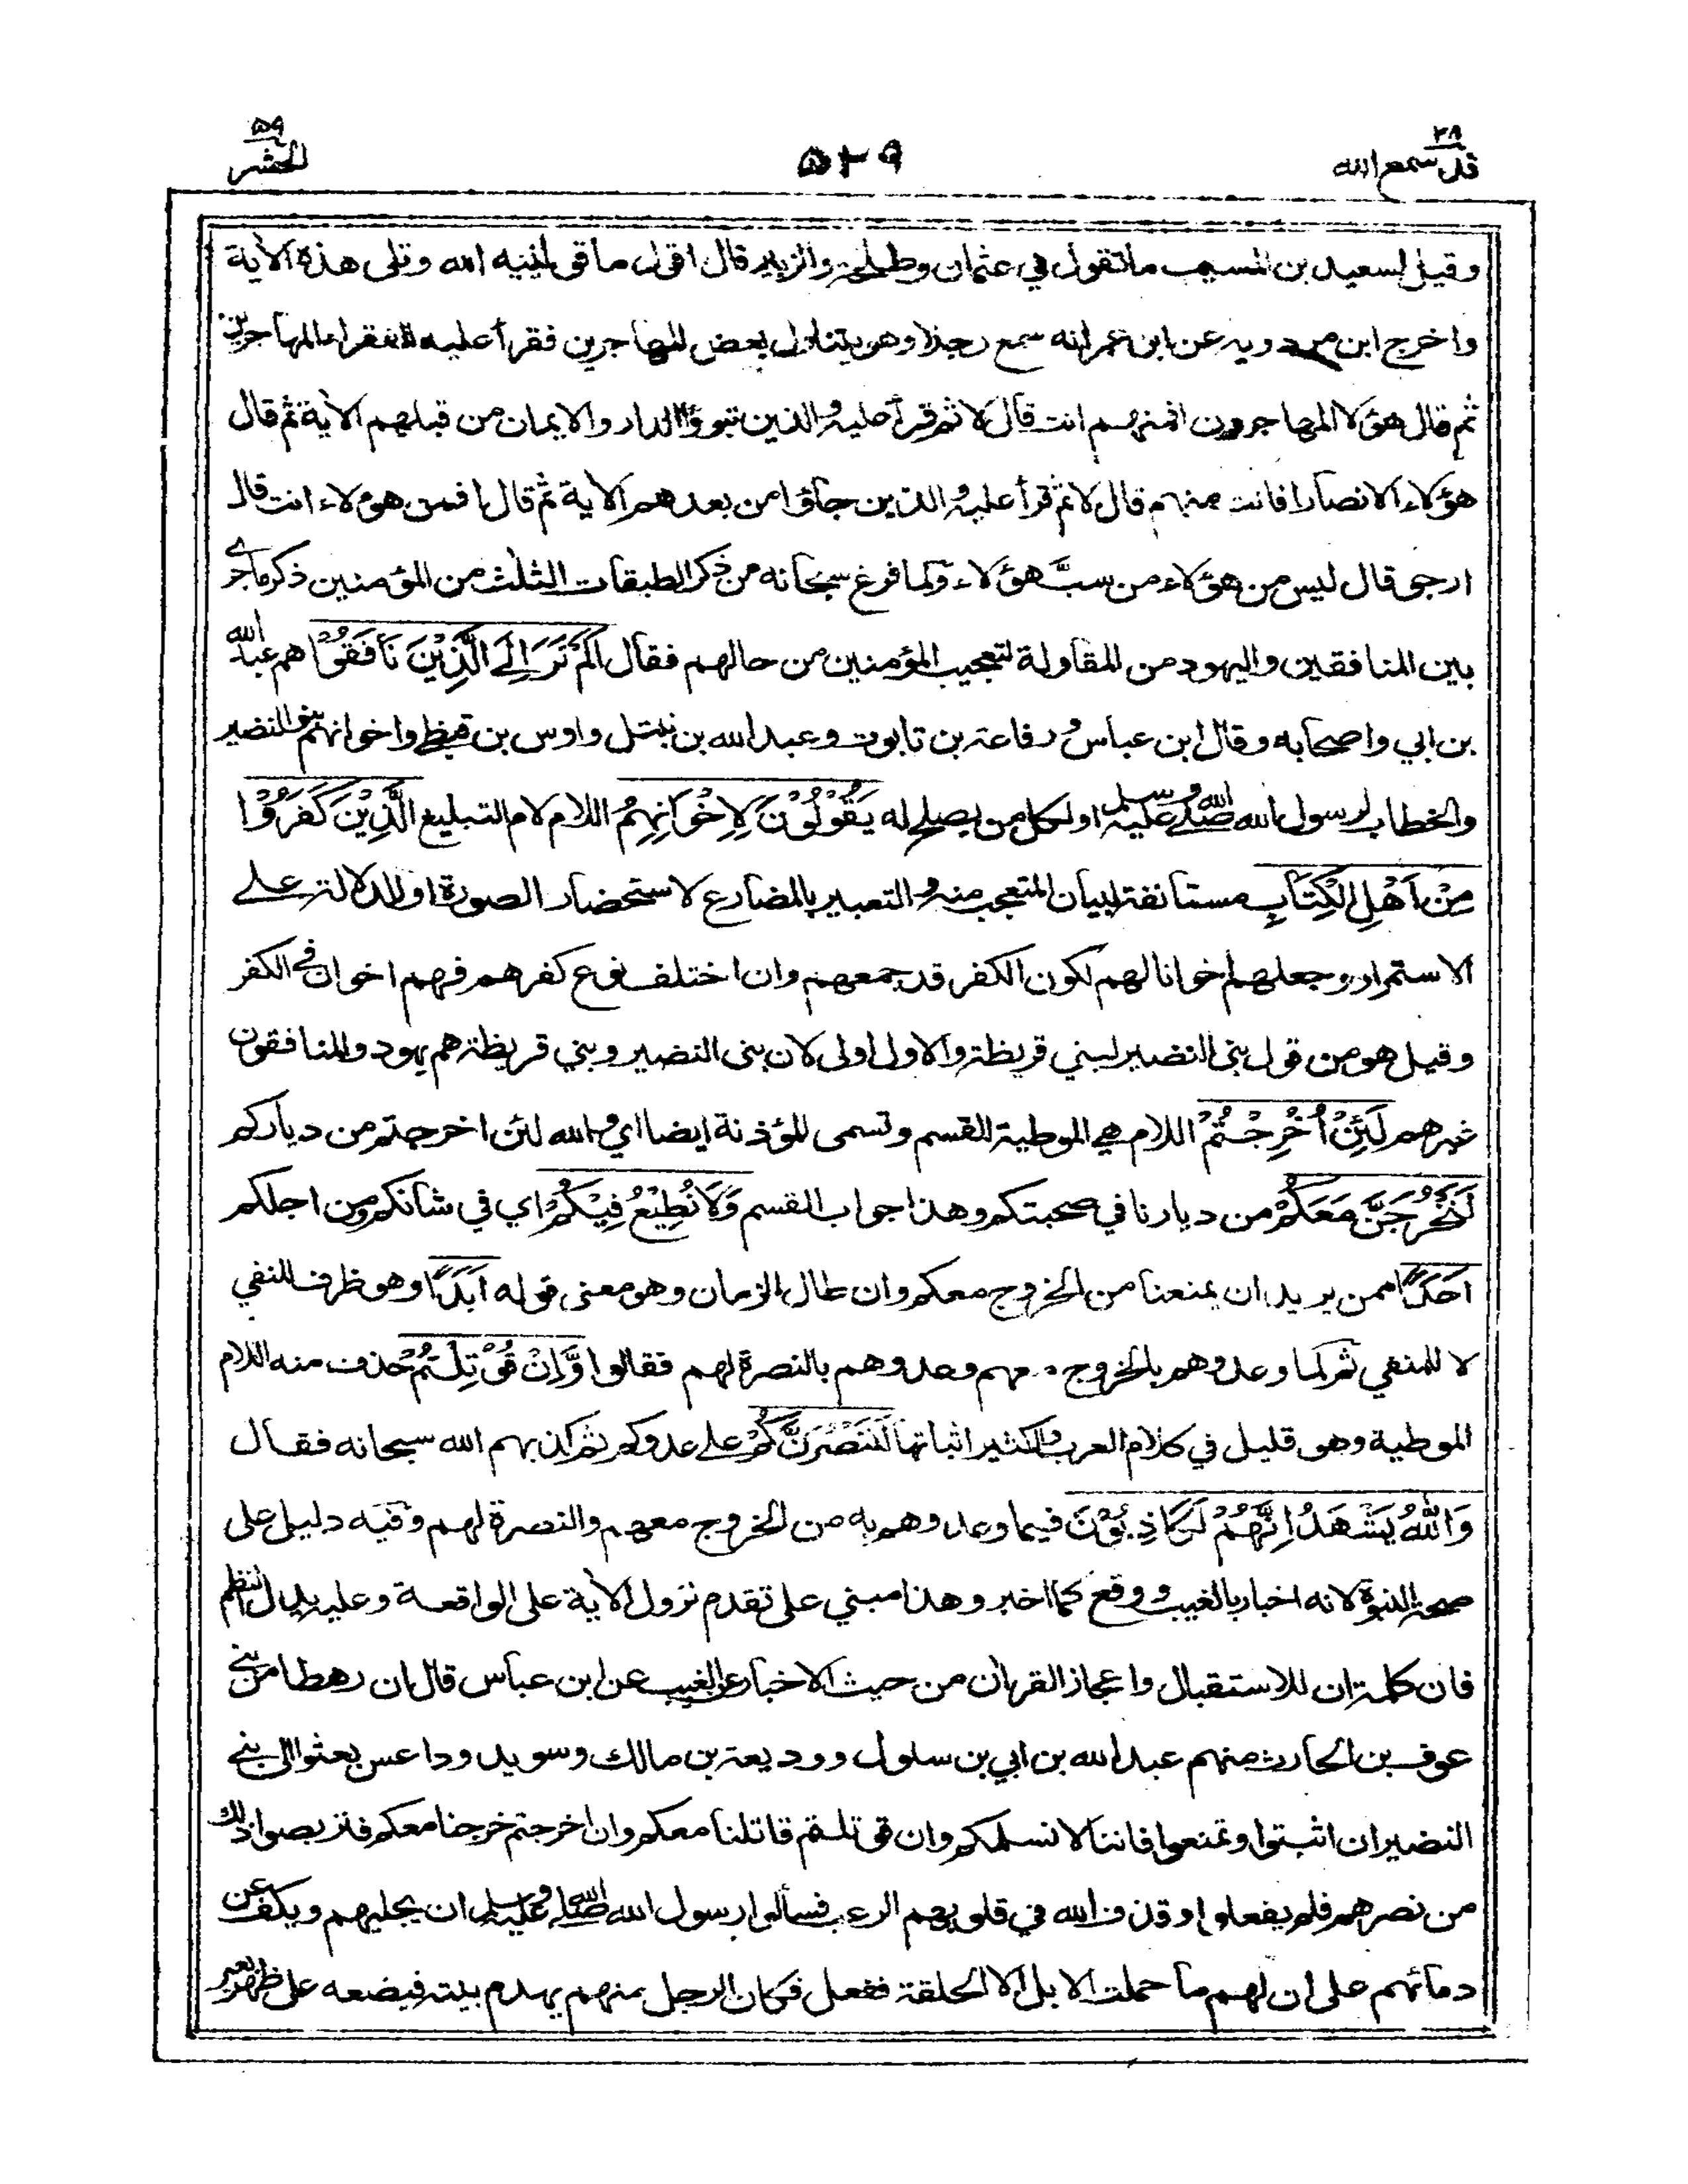 قد سمع الله ٢٨
٥٢٩
الحشر ٥٩
وقيل لسعيد بن المسيب ما تقول في عثمان وطلحة والزبير قال اقول ما قولنيه الله وتلى هذه الآية
واخرج ابن مردويه عن ابن عمر انه سمع رجلا وهو يتناول بعض المهاجرين فقرأ عليه للفقراء المهاجرين
ثم قال هؤلاء المهاجرون افمنهم انت قال لا ثم قرأ عليه والذين تبوؤا الدار والايمان من قبلهم الآية ثم قال
هؤلاء الانصار افانت منهم قال لا ثم قرأ عليه والذين جاؤا من بعدهم الآية ثم قال افمن هؤلاء انت قال
ارجو قال ليس من هؤلاء من سبَّ هؤلاء ولما فرغ سبحانه من ذكر الطبقات الثلث من المؤمنين ذكر ما جرى
بين المنافقين واليهود من المقاولة لتعجيب المؤمنين من حالهم فقال اَلَمْ تَرَ اِلَى الَّذِيْنَ نَافَقُوْا هم عبد الله
بن ابي واصحابه وقال ابن عباس و رفاعة بن تابوت وعبد الله بن نبتل واوس بن قيظي واخوانهم بنو النضير
والخطاب لرسول الله صلى الله عليه وسلم او لكل من يصلح له يَقُوْلُوْنَ لِاِخْوَانِهِمُ اللام لام التبليغ الَّذِيْنَ كَفَرُوْا
مِنْ اَهْلِ الْكِتَابِ مستأنفة لبيان المتعجب منه والتعبير بالمضارع لاستحضار الصورة او للدلالة على
الاستمرار وجعلهم اخوانا لهم لكون الكفر قد جمعهم وان اختلف نوع كفرهم فهم اخوان في الكفر
وقيل هو من قول بني النضير لبني قريظة والاول اولى لان بني النضير وبني قريظة هم يهود والمنافقون
غيرهم لَئِنْ اُخْرِجْتُمْ اللام هي الموطية للقسم وتسمى المؤذنة ايضا اي والله لئن اخرجتم من دياركم
لَنَخْرُجَنَّ مَعَكُمْ من ديارنا في صحبتكم وهذا جواب القسم وَلَا نُطِيْعُ فِيْكُمْ اي في شأنكم ومن اجلكم
اَحَدًا ممن يريد ان يمنعنا من الخروج معكم وان طال الزمان وهو معنى قوله اَبَدًا وهو ظرف للنفي
لا للمنفي ثم لما وعدوهم بالخروج معهم وعدوهم بالنصرة لهم فقالوا وَّاِنْ قُوْتِلْتُمْ حذفت منه اللام
الموطية وهو قليل في كلام العرب والكثير اثباتها لَنَنْصُرَنَّكُمْ على عدوكم ثم كذبهم الله سبحانه فقال
وَاللّٰهُ يَشْهَدُ اِنَّهُمْ لَكَاذِبُوْنَ فيما وعدوهم به من الخروج معهم والنصرة لهم وفيه دليل على
صحة النبوة لانه اخبار بالغيب ووقع كما اخبر وهذا مبني على تقدم نزول الآية على الواقعة وعليه يدل النظم
فان كلمة ان للاستقبال واعجاز القرآن من حيث الاخبار عن الغيب عن ابن عباس قال ان رهطا من بني
عوف بن الحارث منهم عبد الله بن ابي بن سلول ووديعة بن مالك وسويد وداعس بعثوا الى بني
النضير ان اثبتوا وتمنعوا فاننا لا نسلمكم وان قوتلتم قاتلنا معكم وان اخرجتم خرجنا معكم فتربصوا ذلك
من نصرهم فلم يفعلوا وقذف الله في قلوبهم الرعب فسألوا رسول الله صلى الله عليه وسلم ان يجليهم ويكف عن
دمائهم على ان لهم ما حملت الابل الا الحلقة ففعل فكان الرجل منهم يهدم بيته فيضعه على ظهر بعير